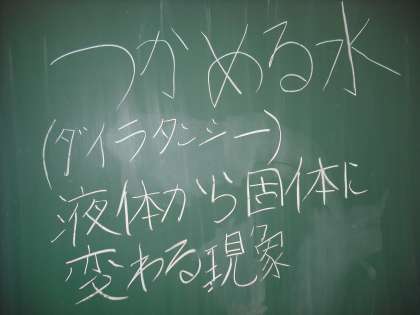 つかめる水
(ダイラタンシー)
液体から固体に
変わる現象